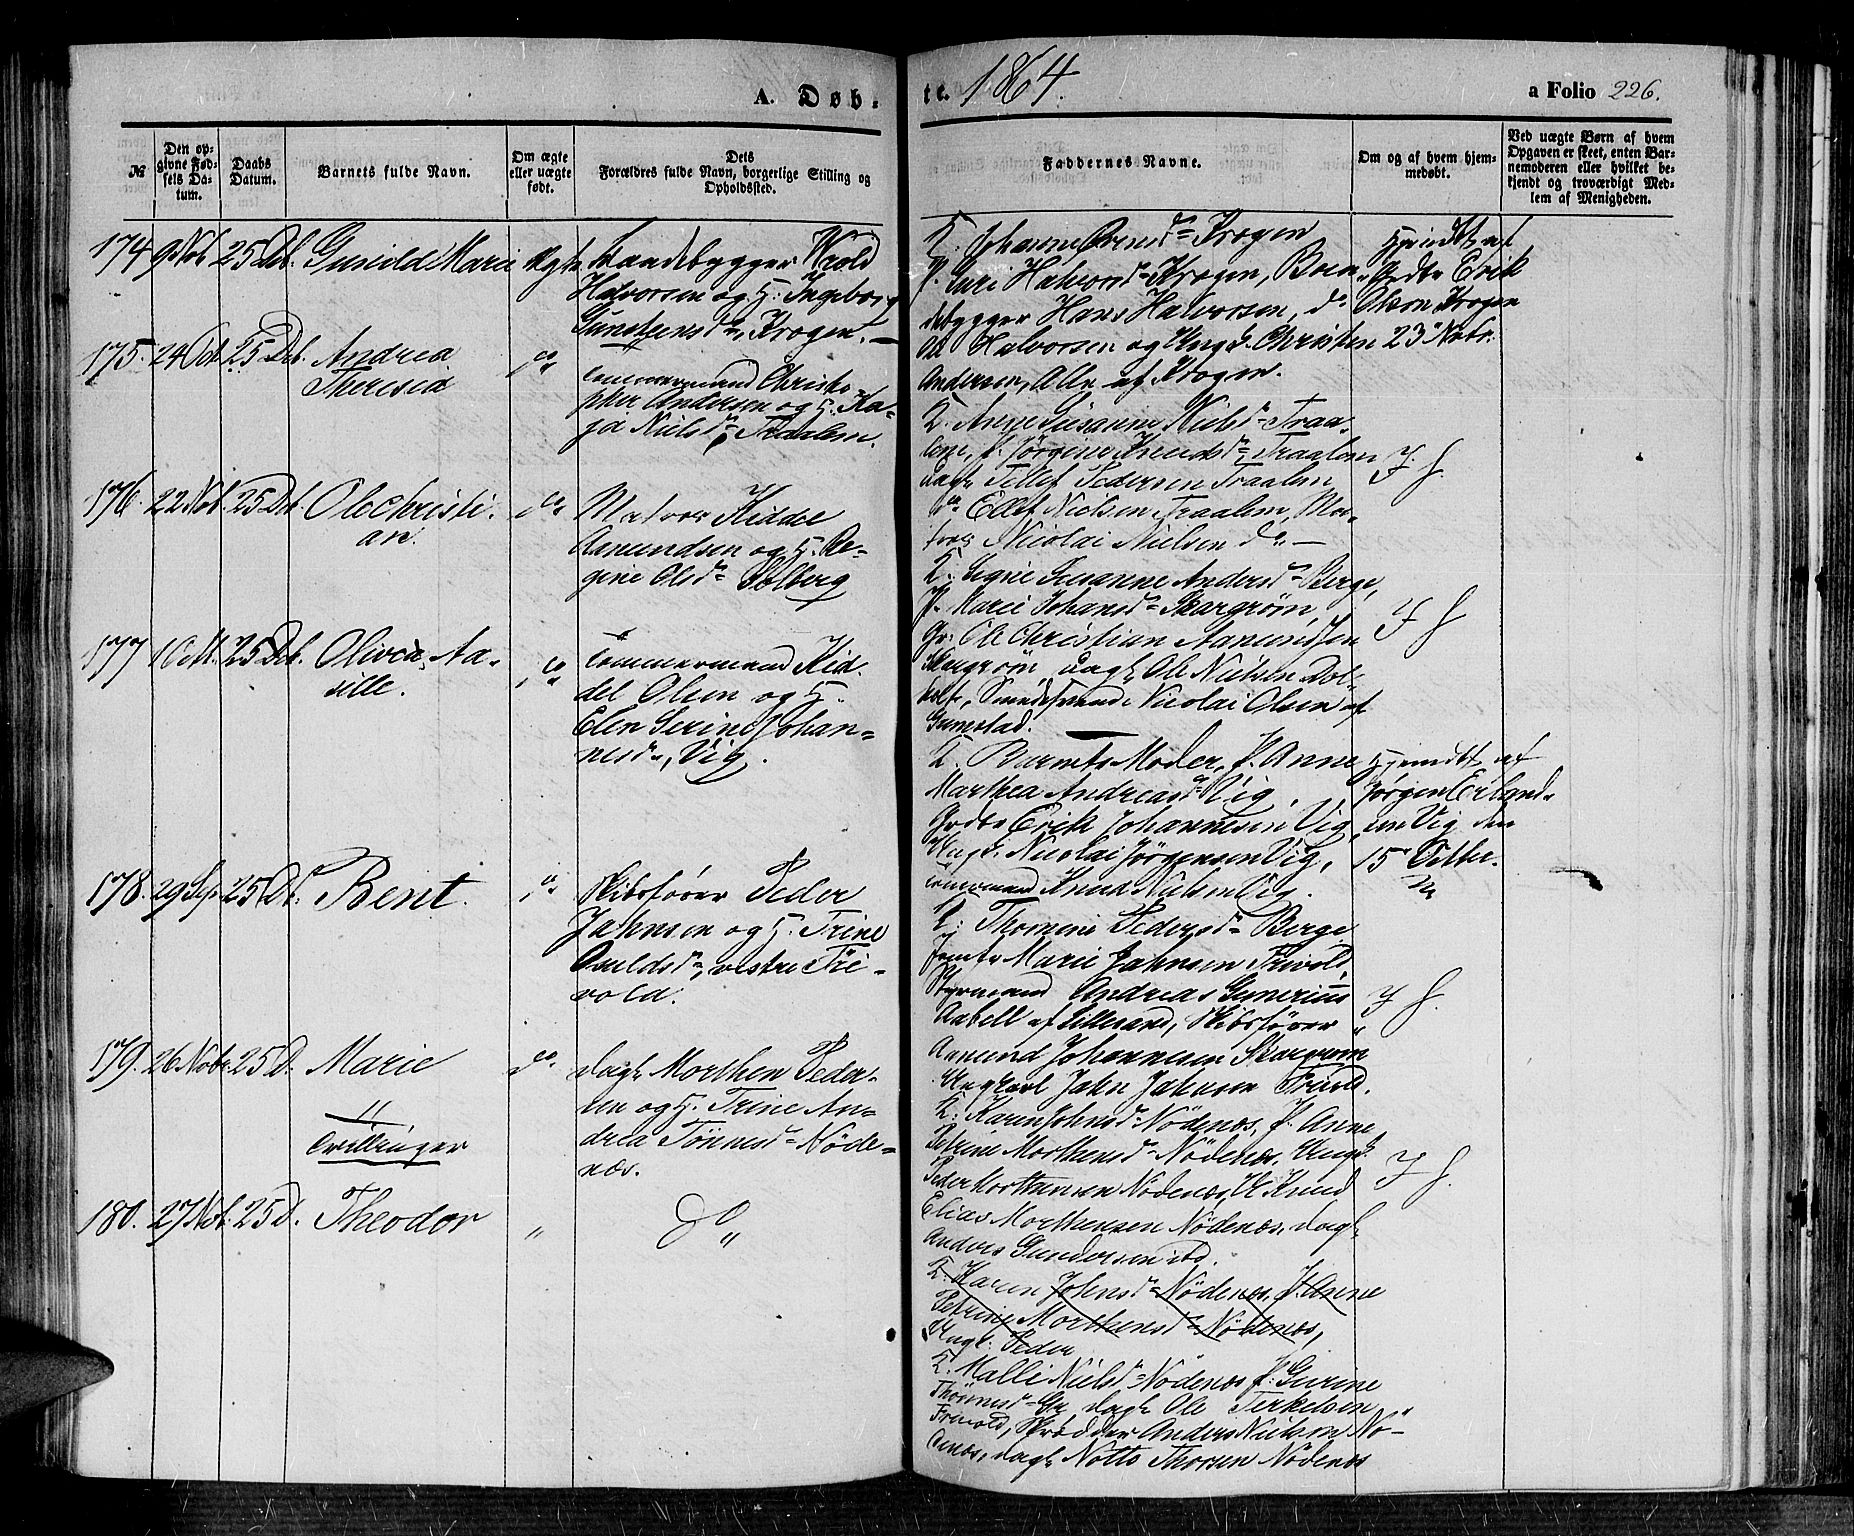 A. Døb-
te. 1864.
a Folio 226.
№
Den op-
givne Fød-
sels Da-
tum.
Daabs
Datum.
Barnets fulde Navn.
Om ægte
eller uægte
født.
Dets
Forældres fulde Navn, borgerlige Stilling og
Opholdssted.
Faddernes Navne.
Om og af hvem hjem-
medøbt.
Ved uægte Børn af hvem
Opgaven er skeet, enten Bar-
nemoderen eller hvilket be-
kjendt og troværdigt Med-
lem af Menigheden.
174 9 Nob 25 Db. Gunild Marie ægte
Halvorsen og H. Ingeborg
Krogen.
K. Johanne Krogen
P. Guri Halvorsd Krogen, Boen
debygger Hans Halvorsen, do
Ole Halvorsen og Ungk. Christen
Andersen, Alle af Krogen.
Hjemdt af
Grdbr Erik
Olsen Krogen
23 Nobr.
175. 24 Oct 25 Db. Andrea
Theresia
do
Tømmermand Christo-
pher Andersen og H. Ka-
ja Nielsd Traalum.
K. Anne Susanne Nielsd Traa-
lum, P. Jørgine Knudsd Traalum
Dagl Tellef Pedersen Traalum
do Ellef Nielsen Traalum, Ma-
tros Nicolai Nielsen do
J. f.
176. 22 Nob. 25 Db. Ole Christi-
an.
do
Matros Kiddel
Aanundsen og H. Re-
gine Olsd Solberg
K. Signe Susanne Andersd Berge,
P. Marie Johansd Skargrøm
Gr. Ole Christian Aanundsen
Skargrøm, Dagl Ole Nielsen Dol-
holt, Nicolai Olsen af
Grimstad.
J f
177 1 Oct. 25 Db. Olivia Aa-
sille.
do
Tømmermand Kid-
del Olsen og H.
Elen Serine Johan-
nesd, Vig.
K. Barnets Moder, P. Anne
Marthea Andreasd Vig,
Grdbr Erik Johannesen Vig,
Ungk. Nicolai Jørgensen Vig,
Knud Nielsen Vig.
Hjemdt af
Jørgen Erland-
sen Vig den
15 Octbr.
178. 29 Sep 25 Db. Bent.
do
Skibsfører Peder
Jahnsen og H. Trine
Osuldsd, vestre Fri-
vold.
K. Thomine Pedersd Berge
Jomfr Marie Jahnsen Frivold,
Styrmand Andreas Gunerius
Aabell af Lillesand, Skibsfører
Aanund Johannesen Skargrøm
Ungkarl Jahn Jahnsen Frivold.
J f.
179. 26 Nobr. 25 D. Marie
"
Tvillinger
do
Dagl Morthen Peder-
sen og H. Trine An-
drea Tønnesd Nøde-
næs.
K. Karen Johnsd Nødenæs, P. Anne
Petrine Morthensd Nødenæs, Ungk.
Peder Morthensen Nødenæs, U. Knud
Elias Morthensen Nødenæs, Dagl
Anders Gundersen ibd.
J f.
180. 27 Nob. 25 D. Theodor
"
do "
K. Karen Johnsd Nødenæs, P. Anne
Petrine Morthensd Nødenæs,
Ungk. Peder
K. Malli Nielsd Nødenæs P. Gurine
Dagl Ole Terkelsen
Frivold, Skrædder Anders Nielsen Nø-
denæs, Dagl Notto Thorsen Nødenæs